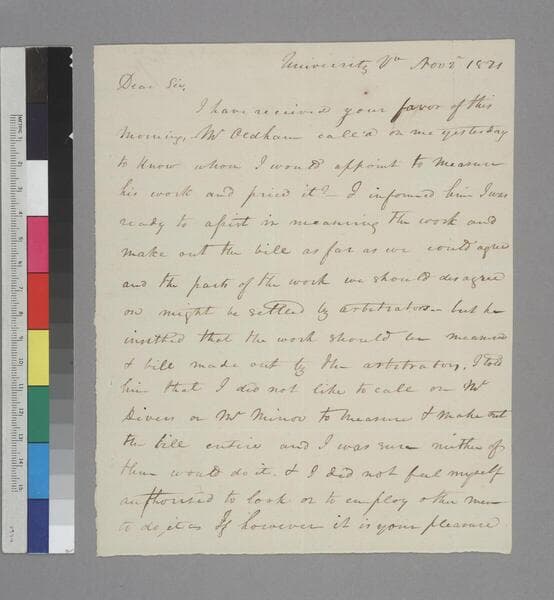 University Va Nov 2d 1821
Dear Sir,
I have received your favor of this
morning, Mr Oldham call'd on me yesterday
to know whom I would appoint to measure
his work and price it?— I informed him I was
ready to assist in measuring the work and
make out the bill as far as we could agree
and the parts of the work we should disagree
on might be settled by arbitrators— but he
insisted that the work should be measured
& bill made out by the arbitrators. I told
him that I did not like to call on Mr
Divers or Mr Minor to measure & make out
the bill entire and I was sure neither of
them would do it. & I did not feel myself
authorised to look or to employ other men
to do it If however it is your pleasure